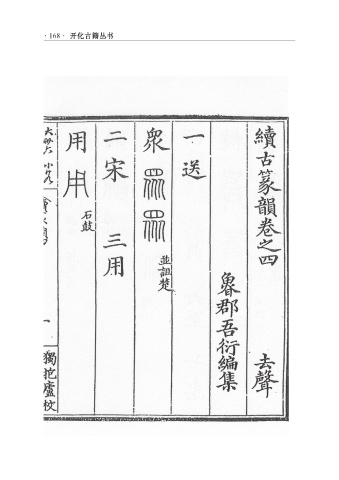 · 168 · 开化古籍丛书
續古篆韻卷之四 去聲
魯郡吾衍編集
一送
衆 並詛楚
二宋 三用
用 石鼓
一
獨抱廬校